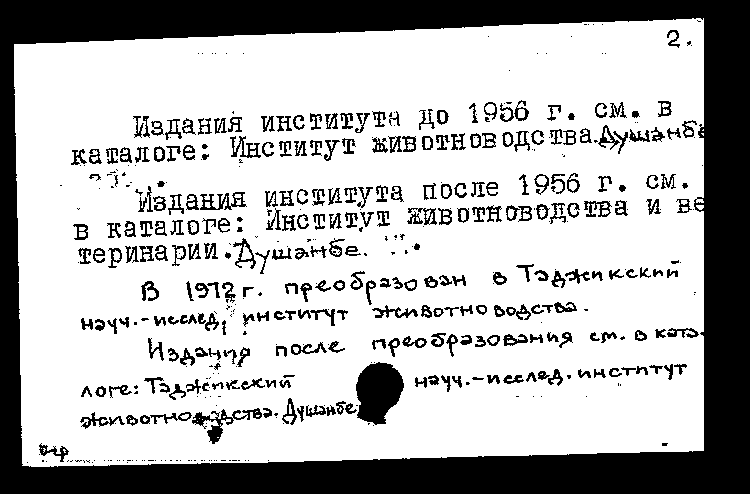 2.
Издания института до 1956 г. см. в
каталоге: Институт животноводства. Душанбе
Издания института после 1956 г. см.
в каталоге: Институт животноводства и ве
теринарии. Душанбе.
В 1972 г. преобразован в Таджикский
науч.-исслед. институт животноводства.
Издания после преобразования см. в ката-
логе: Таджикский науч.-исслед. институт
животноводства. Душанбе